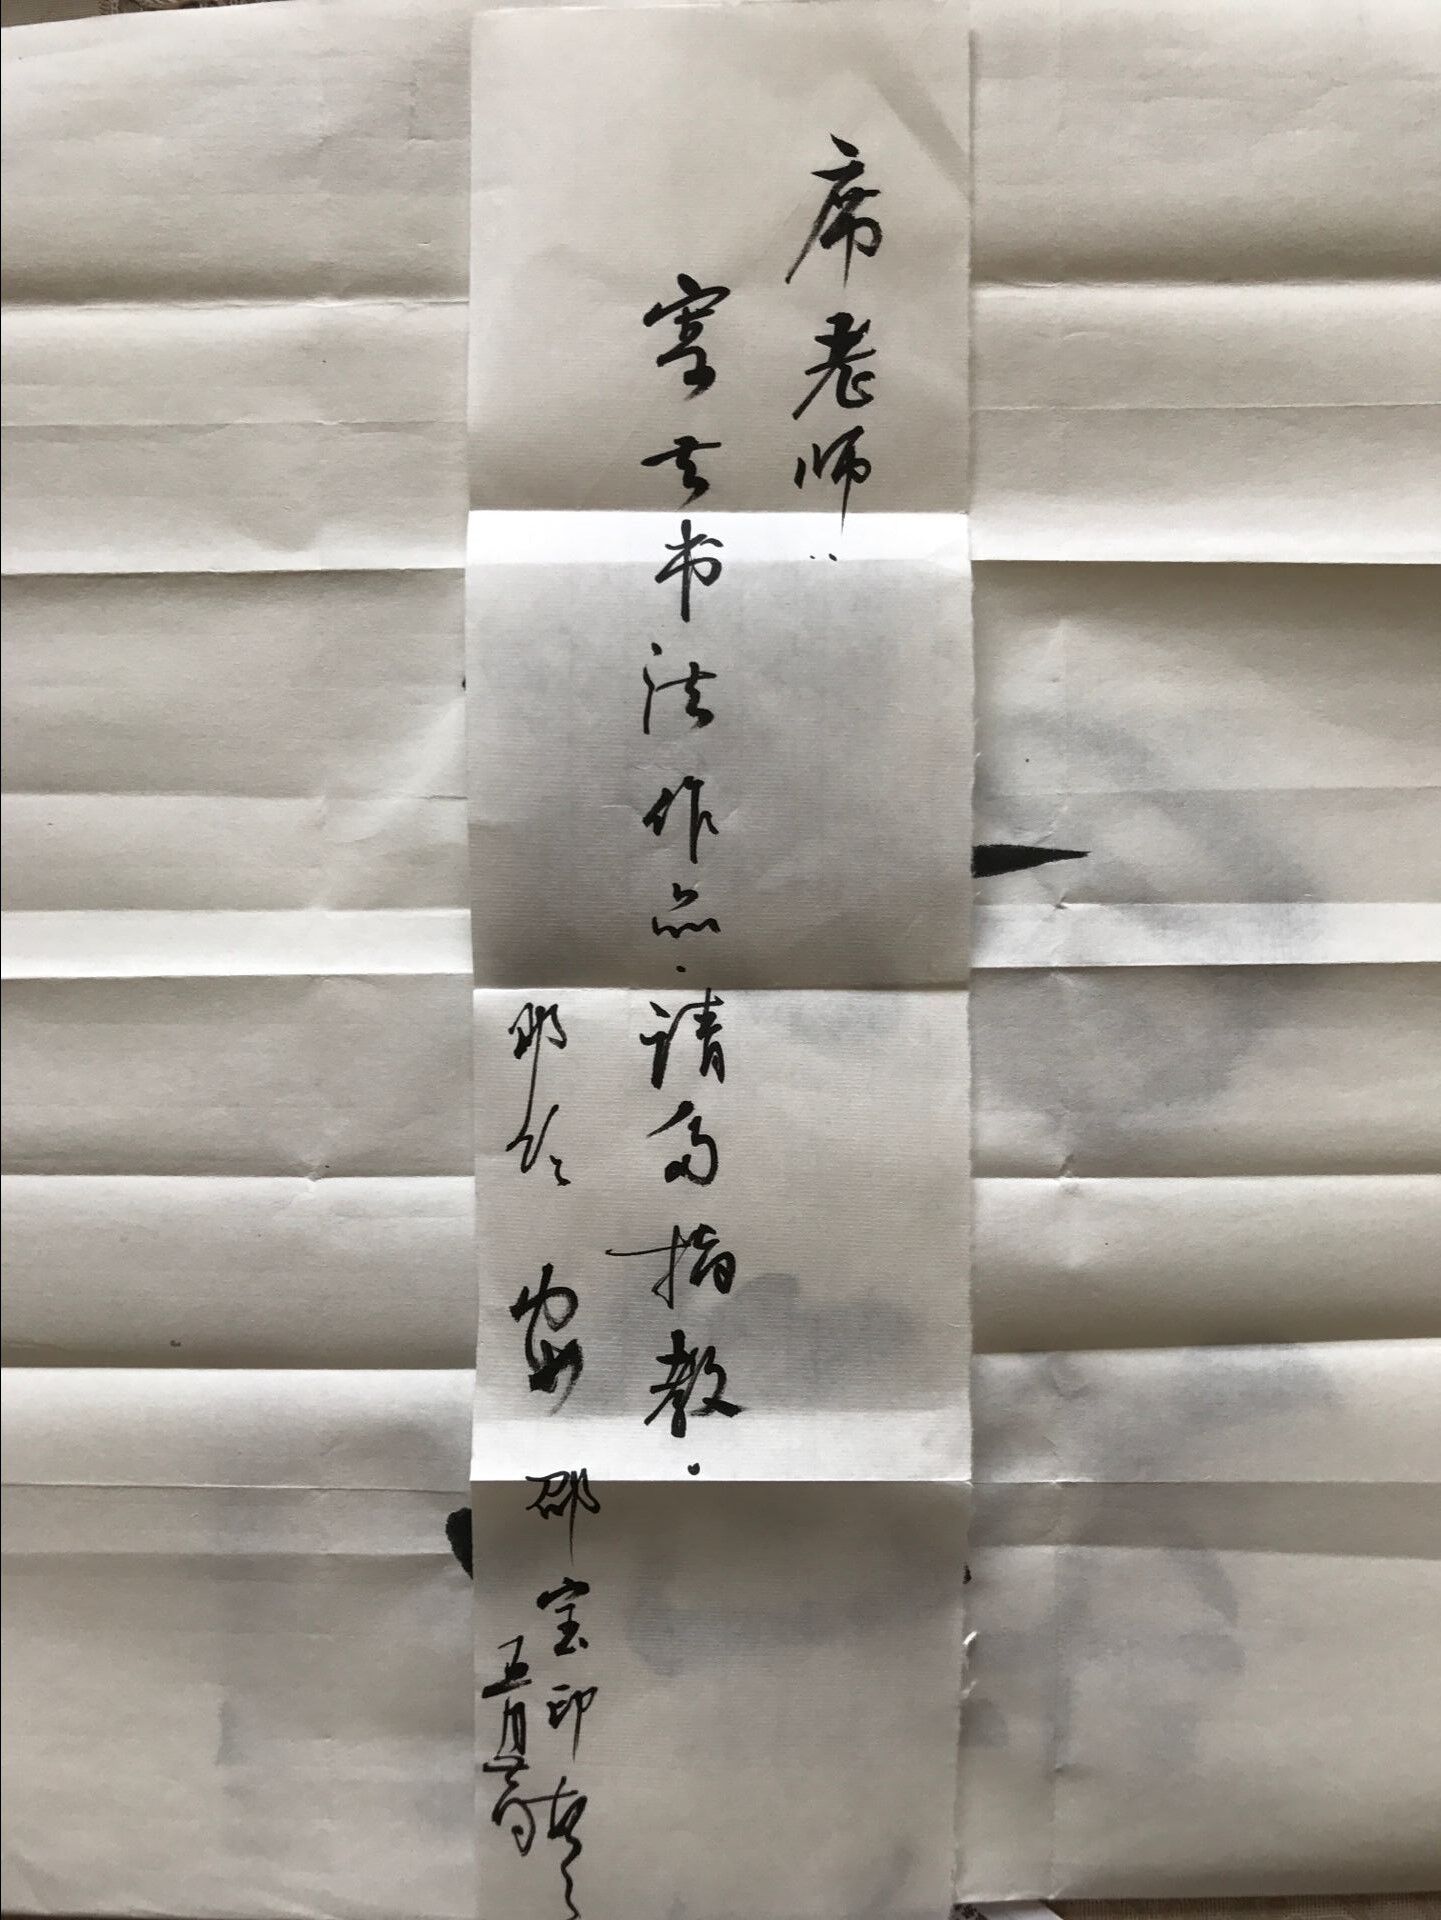 席老师:
寄去书法作品.请多指教.
邵宝印
五月